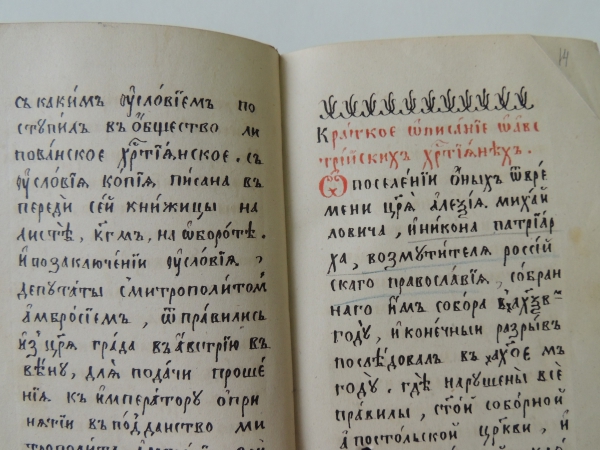 съ какимъ ѹ҆словїемъ по
ступилъ въ О҆бщество ли
пованское хрⷭ҇тїянское. съ
ѹ҆словїя копїя писана въ
переди сей книжицы на
листѣ, к҃г мъ, на ѡ҆боротѣ.
И҆ по заключенїи ѹ҆словїя,
депутаты с митрополитом
Амвросїемъ, ѿправились
из Цр҃я града въ Австрїю въ
вѣну, для подачи проше
нїя къ императору о при
нятїи въ подданство ми
14
Краткое ѡ҆писанїе ѡ҆ авс
трїйскихъ хрⷭ҇тїянѣхъ.
Ѡ поселенїи О҆ныхъ ѿ вре
мени цр҃я алеѯїя. михай
ловича, и҆ никона патрїар
ха, возмутителя россїй
скаго православїя, собран
наго и҆мъ собора в
году, и҆ конечный разрывъ
послѣдовалъ въ мъ
году. гдѣ нарушены все
правилы, ст҃ой соборной
апостольской церкви, и҆